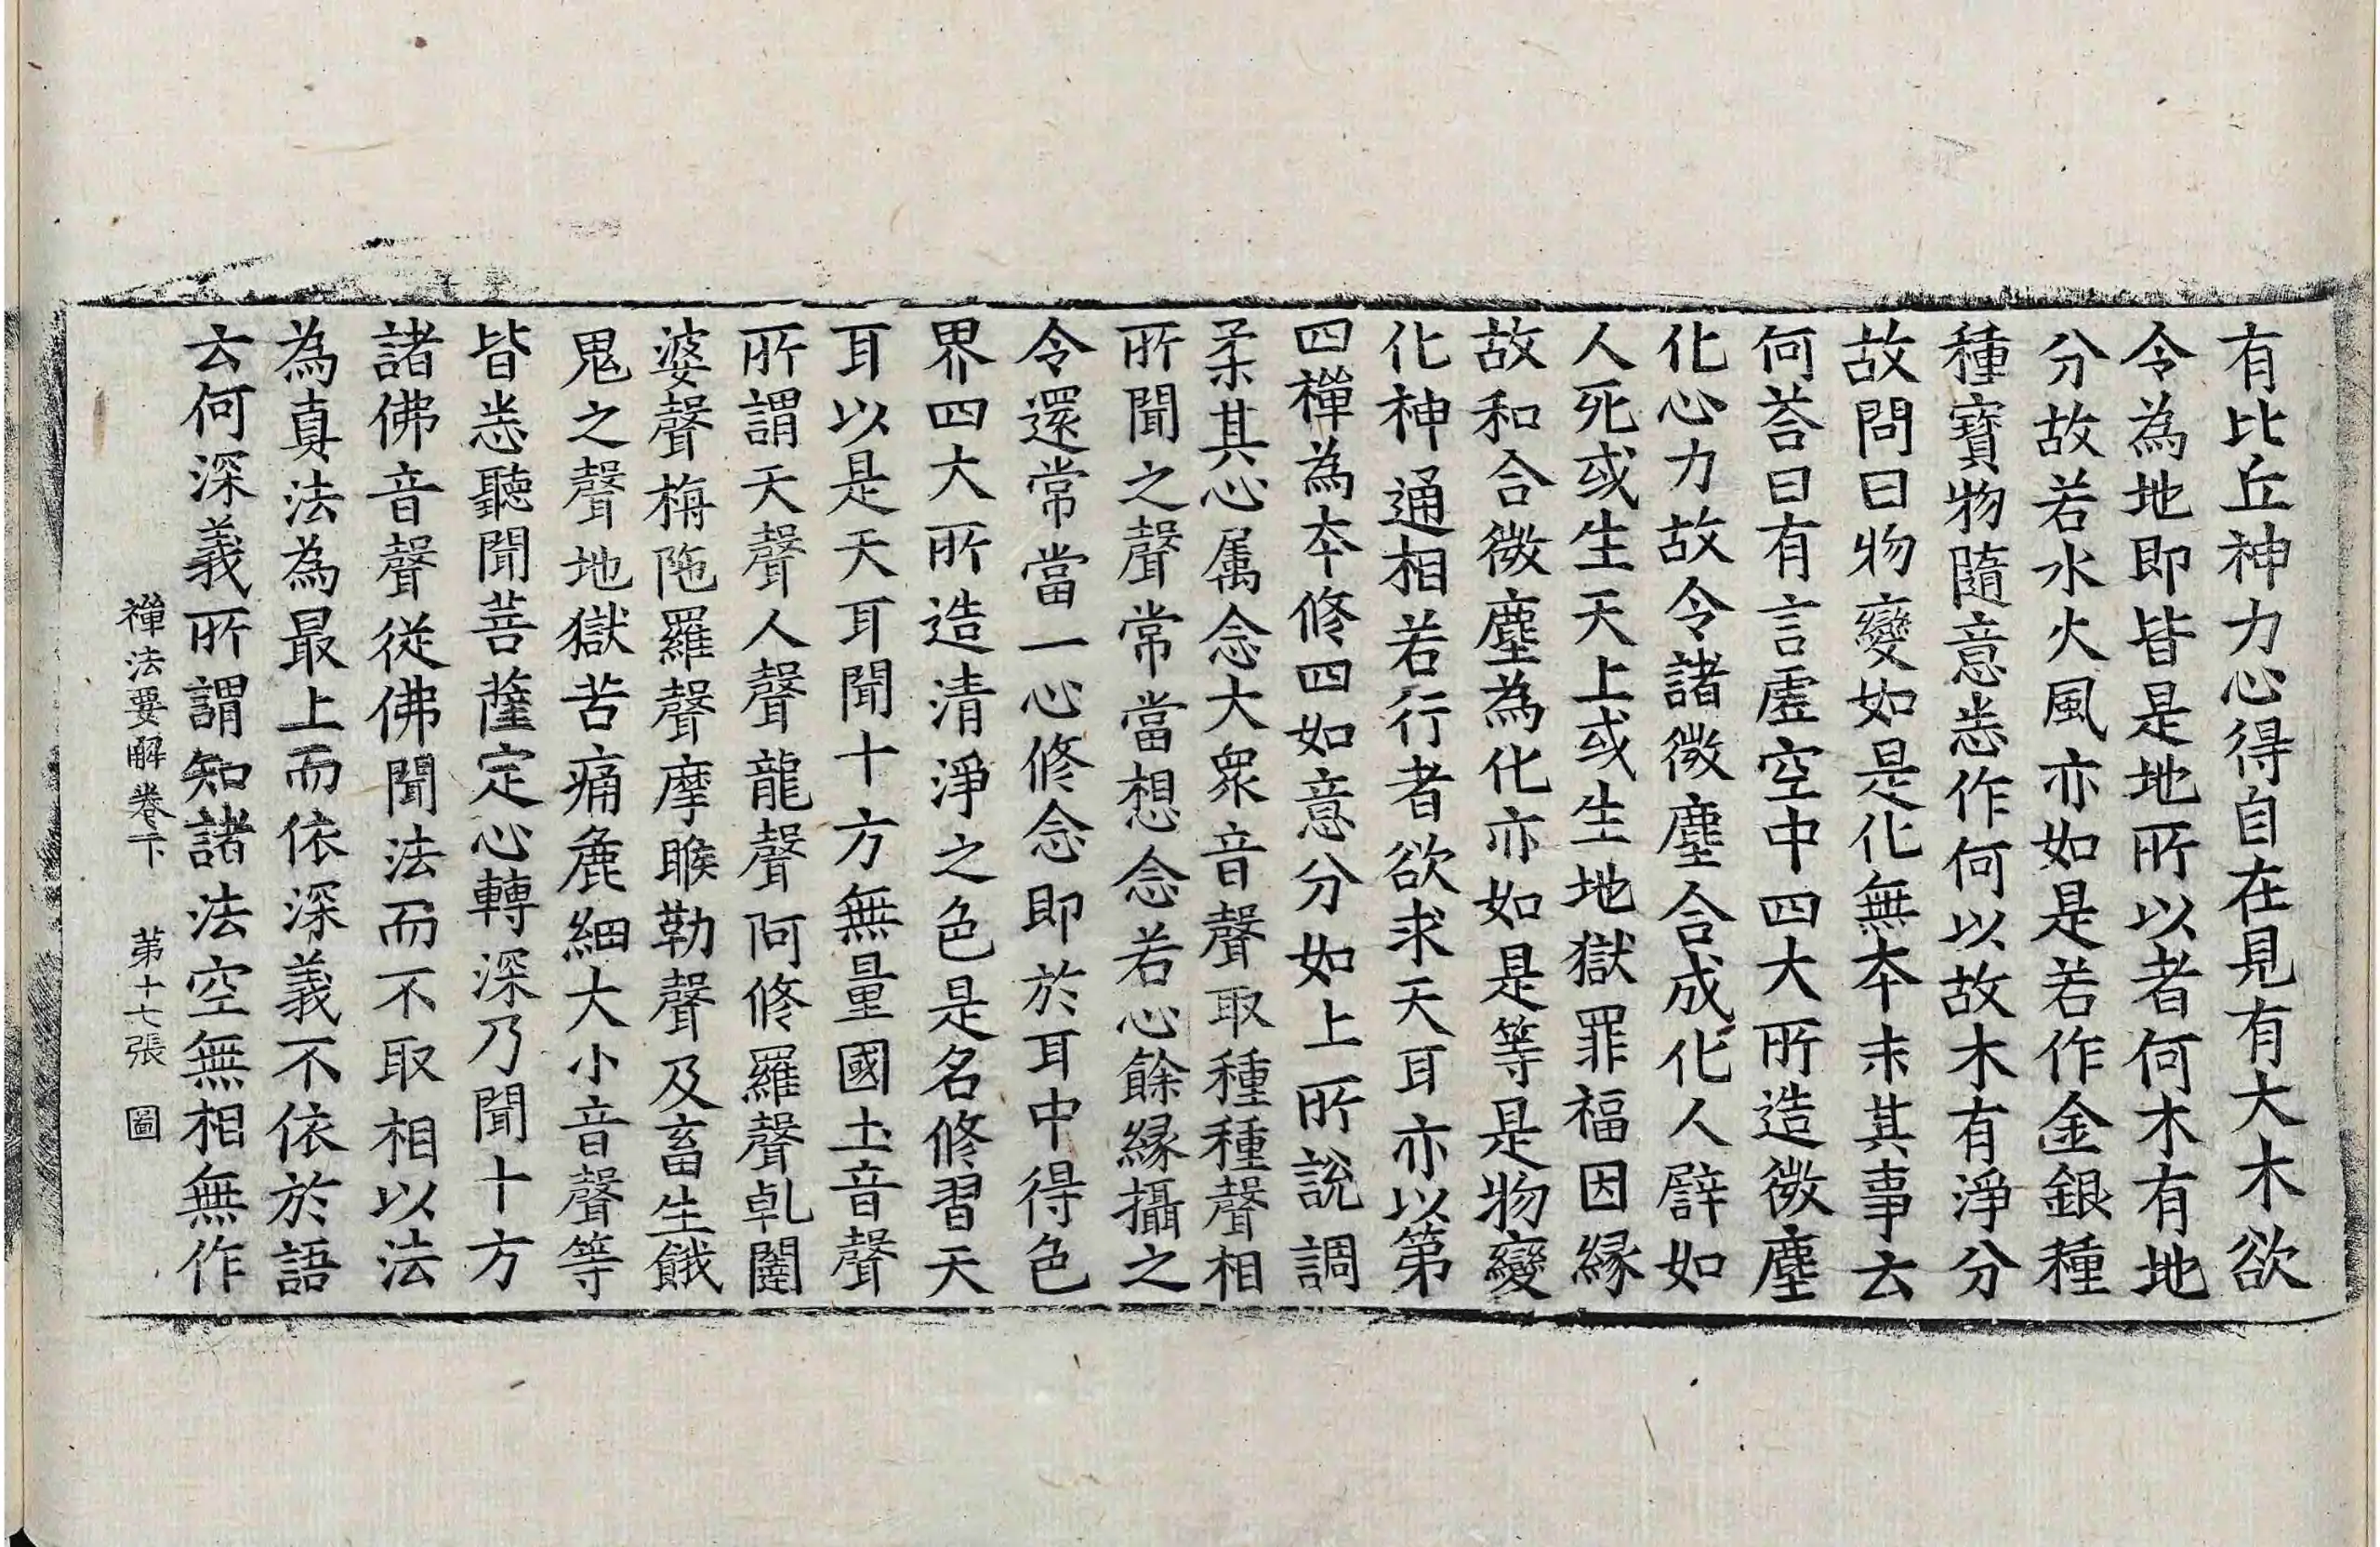 有比丘神力心得自在見有大木欲
令為地即皆是地所以者何木有地
分故若水火風亦如是若作金銀種
種寶物隨意悉作何以故木有淨分
故問曰物變如是化無本末其事云
何荅曰有言虛空中四大所造微塵
化心力故令諸微塵合成化人譬如
人死或生天上或生地獄罪福因緣
故和合微塵為化亦如是等是物變
化神通相若行者欲求天耳亦以第
四禪為本修四如意分如上所說調
柔其心属念大衆音聲取種種聲相
所聞之聲常當想念若心餘緣攝之
令還常當一心修念即於耳中得色
界四大所造清淨之色是名修習天
耳以是天耳聞十方無量國土音聲
所謂天聲人聲龍聲阿修羅聲乹闥
婆聲栴陁羅聲摩睺勒聲及畜生餓
鬼之聲地獄苦痛麁細大小音聲等
皆悉聽聞菩薩定心轉深乃聞十方
諸佛音聲從佛聞法而不取相以法
為真法為最上而依深義不依於語
云何深義所謂知諸法空無相無作
禪法要解卷下　第十七張　圖